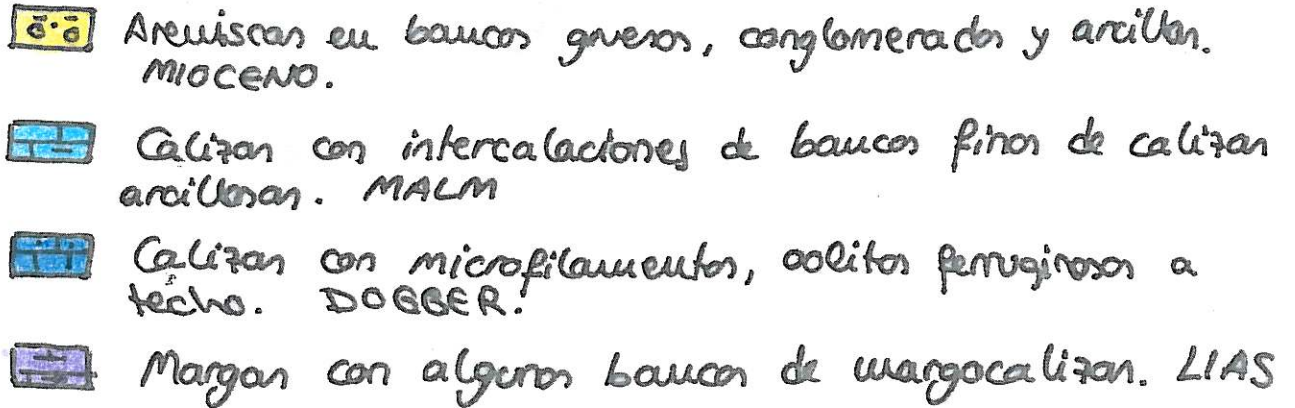 Areniscas en bancos gruesos, conglomerados y arcillas.
MIOCENO.
Calizas con intercalaciones de bancos finos de calizas
arcillosas. MALM
Calizas con microfilamentos, oolitos ferruginosos a
techo. DOGGER.
Margas con algunos bancos de margocalizas. LIAS